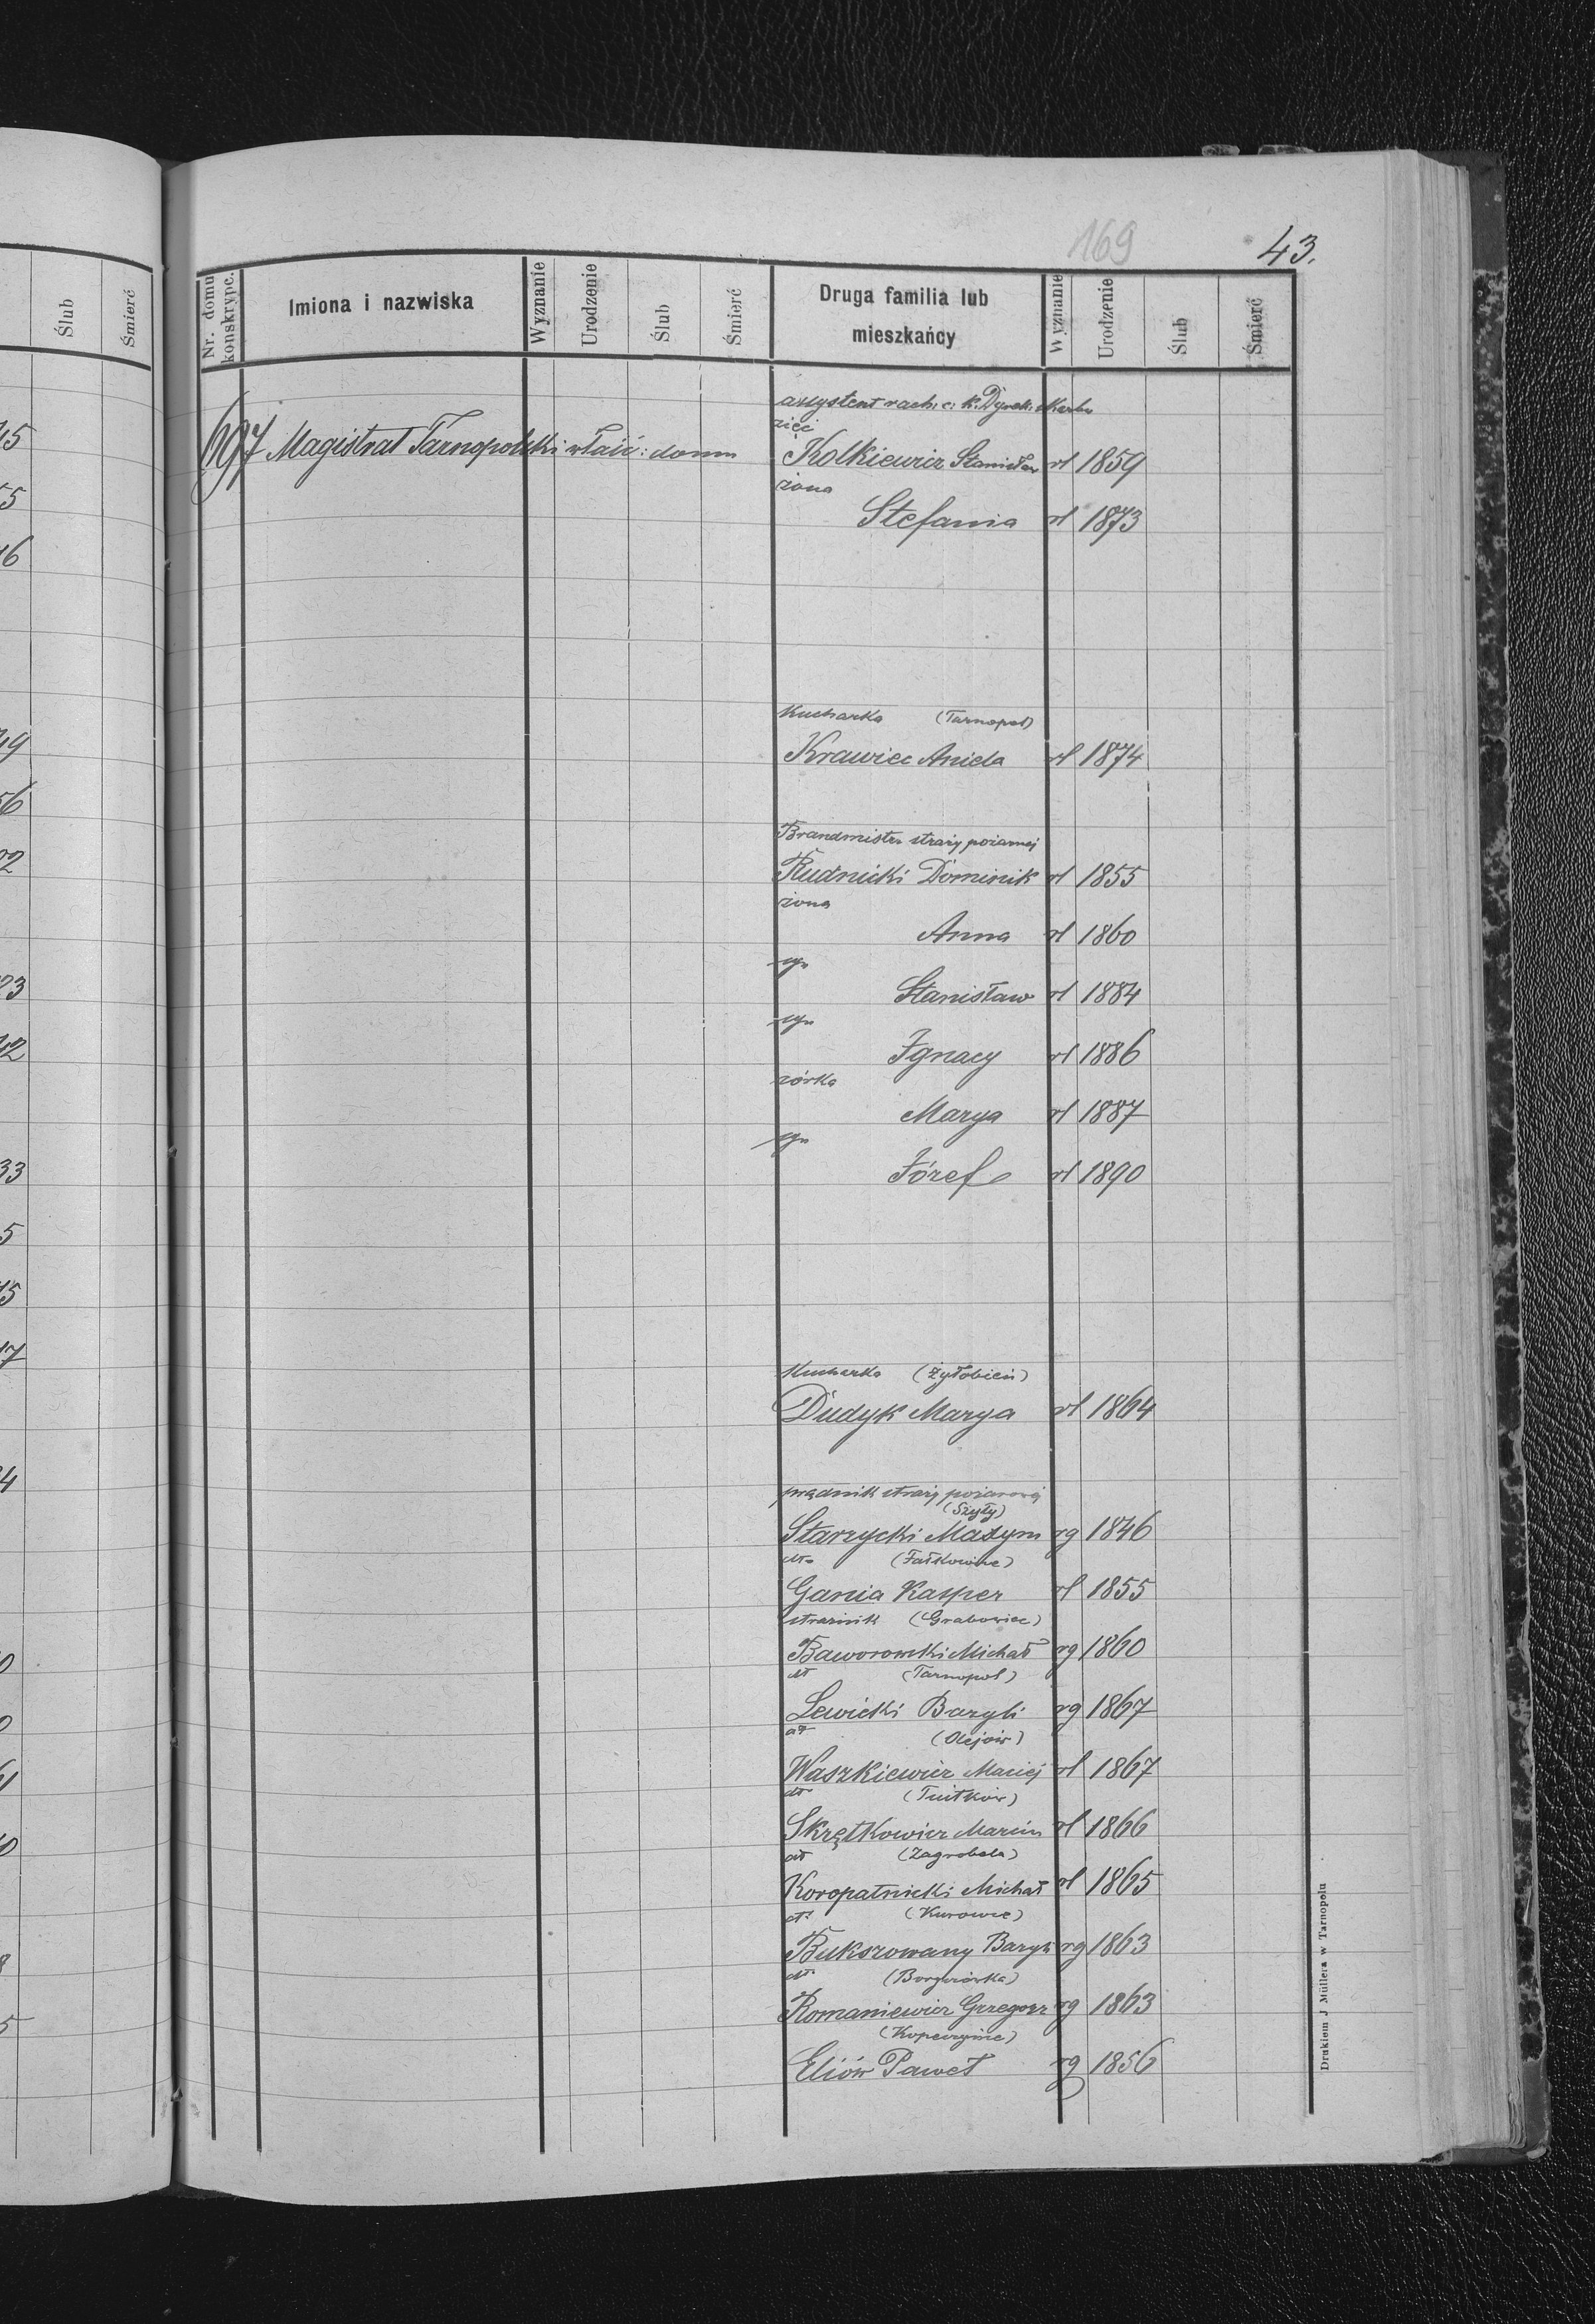 169
43.
Ślub
Śmierć
Nr. domu konskrypc.
Imiona i nazwiska
Wyznanie
Urodzenie
Ślub
Śmierć
Druga familia lub mieszkańcy
Wyznanie
Urodzenie
Ślub
Śmierć
assystent rach: c: k. Dyrek: skarbu
697 Magistrat Tarnopolski właść: domu
zięć
Kolkiewicz Stanisław rł 1859
żona
Stefania rł 1873
Kucharka (Tarnopol)
Krawiec Aniela rł 1874
Brandmistrz straży pożarnej
Rudnicki Dominik rł 1855
żona
Anna rł 1860
syn
Stanisław rł 1884
syn
Ignacy rł 1886
córka
Marya rł 1887
syn
Józef rł 1890
Kucharka
Dudyk Marya rł 1864
straży pożarowej
(Szyły)
Starzycki Maxym rg 1846
dto
Gania Kasper rł 1855
strażnik (Grabowiec)
Baworowski Michał rg 1860
dt (Tarnopol)
Lewicki Bazyli rg 1867
dt (Olejów)
Waszkiewicz Maciej rł 1867
dt
Skrętkowicz Marcin rł 1866
dt (Zagrobela)
Koropatnicki Michał rł 1865
dt (Kurowce)
Bukszowany Bazyli rg 1863
dt (Borywiórka)
Romaniewicz Grzegorz rg 1863
(Kopeczyńce)
Eliów Paweł rg 1856
Drukiem J Müllera w Tarnopolu